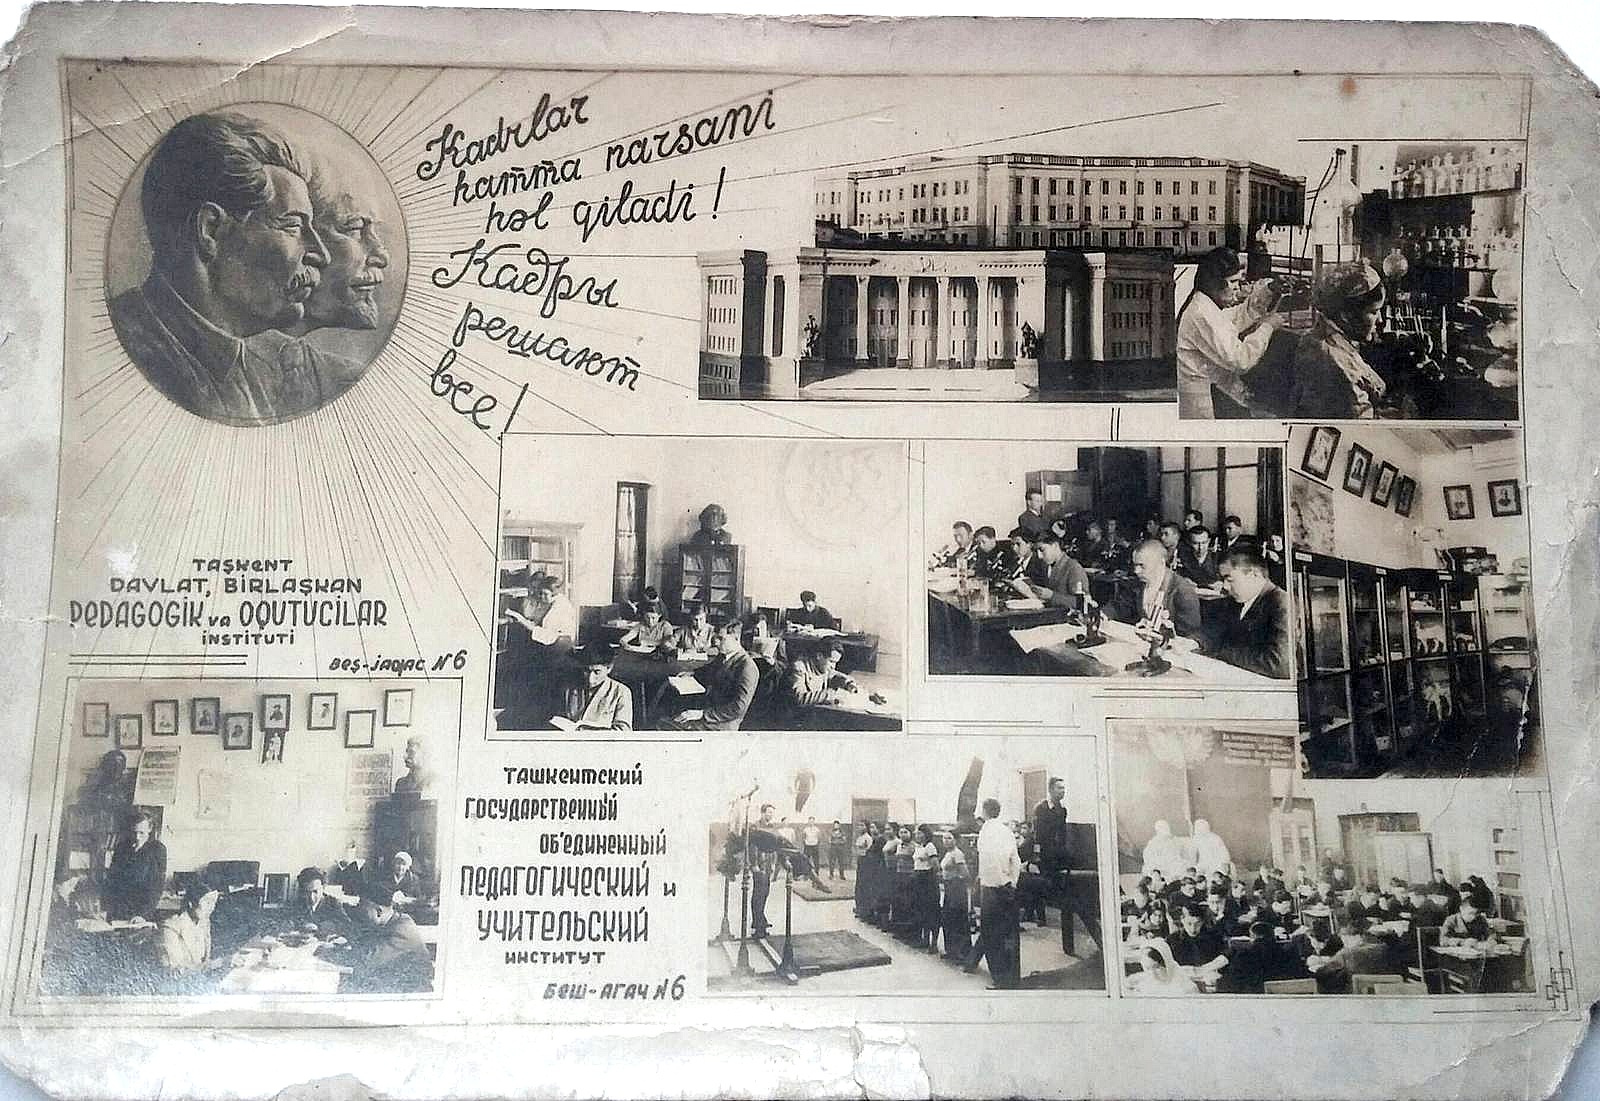 Kadrlar
hamma narsani
həl qiladi!
Кадры
решают
все!
TAŞKENT
DAVLAT, BIRLAŞKAN
PEDAGOGIK va OQUTUCILAR
INSTITUTI
BEŞ-JAQAC N6
ТАШКЕНТСКИЙ
ГОСУДАРСТВЕННЫЙ
ОБ'ЕДИНЕННЫЙ
ПЕДАГОГИЧЕСКИЙ и
УЧИТЕЛЬСКИЙ
ИНСТИТУТ
БЕШ-АГАЧ N6